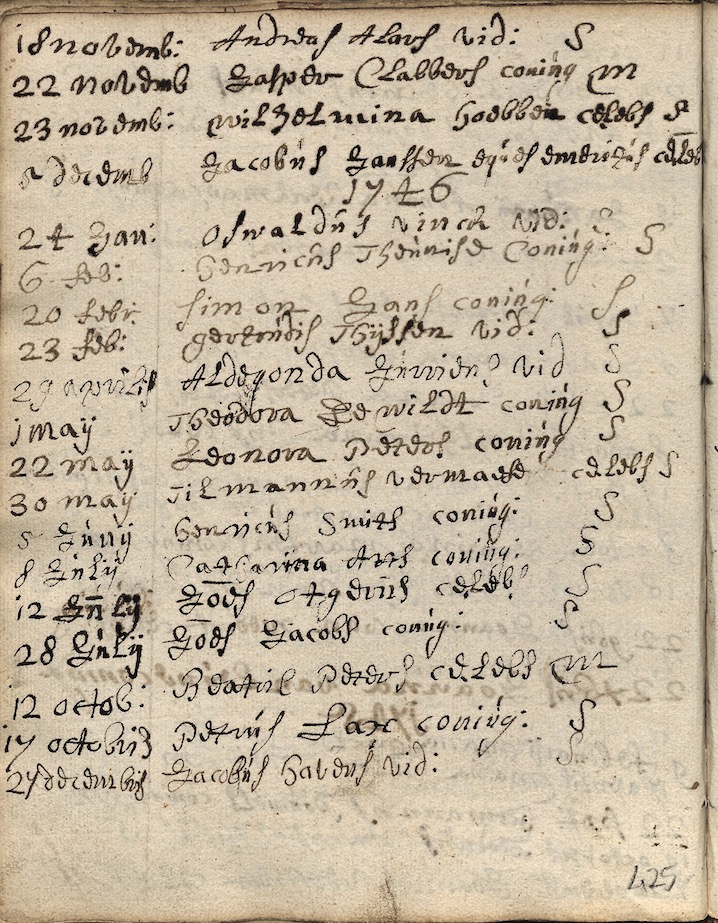 18 novemb: Andreas Alars vid: S
22 novemb Gasper Clabbers coniúg M
23 novemb: wilhelmina hoebben celebs S
5 decemb Jacobús Janssen eqúes emeritús celeb
1746
24 Jan: Oswaldús vinck vid: S
6 feb: henricús Theúnisse Coniúg: S
20 febr: simon Gans coniúg: S
23 feb: gertrúdis Thijssen vid: S
29 aprilis Aldegonda vid S
1 may Theodora de wildt coniúg S
22 may Leonora Peters coniúg S
30 may Tilmannús vermaese celebs S
5 Júnij henricús Smits coniúg: S
8 Júlij Catharina Arts coniúg: S
12 Júlij Joēs otgeriús celeb: S
28 Júlij Joēs Jacobs coniúg: S
12 octob: Beatrix Peters celebs M
17 octobris Petrús Lax coniúg: S
27 decembris Jacobús havens vid: S
125